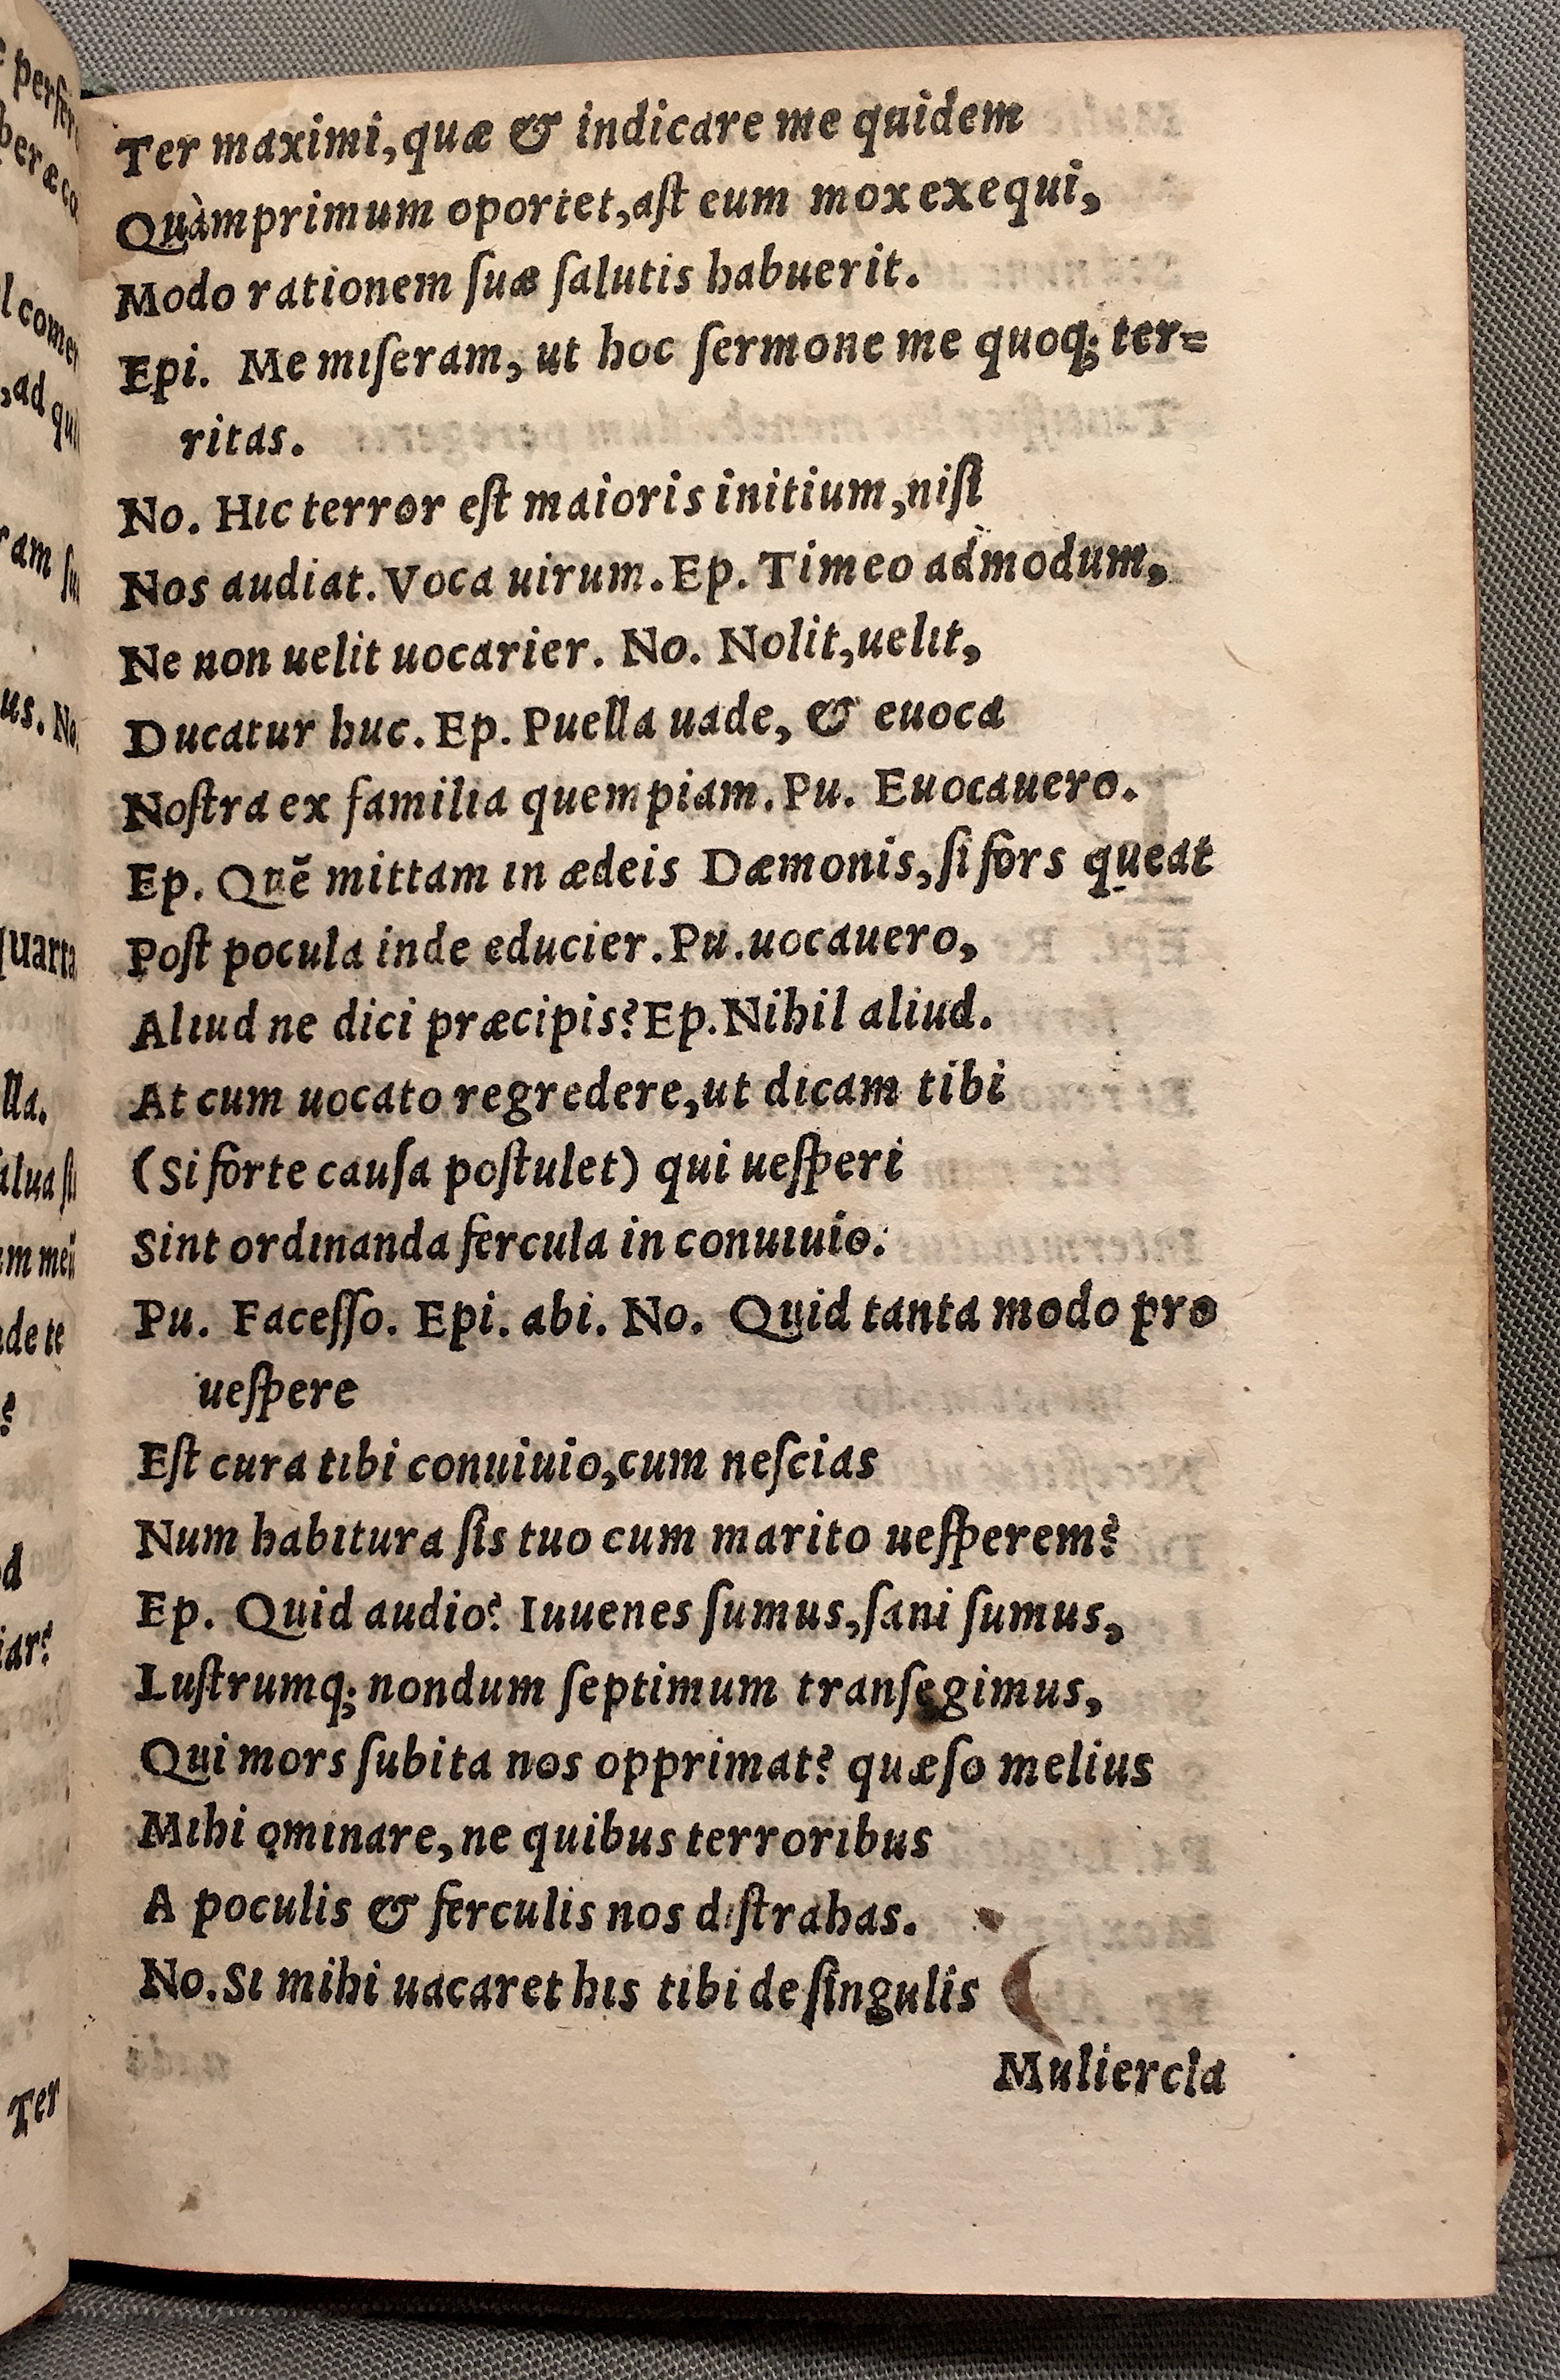 Ter maximi, quæ & indicare me quidem
Quàmprimum oportet, aſt eum mox exequi,
Modo rationem ſuæ ſalutis habuerit.
Epi. Me miſeram, ut hoc ſermone me quoq; ter=
ritas.
No. Hic terror eſt maioris initium, niſi
Nos audiat. Voca uirum. Ep. Timeo admodum,
Ne non uelit uocarier. No. Nolit, uelit,
Ducatur huc. Ep. Puella uade, & euoca
Noſtra ex familia quempiam. Pu. Euocauero.
Ep. Quē mittam in ædeis Dæmonis, ſi fors queat
Poſt pocula inde educier. Pu. uocauero,
Aliud ne dici præcipis? Ep. Nihil aliud.
At cum uocato regredere, ut dicam tibi
(Si forte cauſa poſtulet) qui ueſperi
Sint ordinanda fercula in conuiuio.
Pu. Faceſſo. Epi. abi. No. Quid tanta modo pro
ueſpere
Eſt cura tibi conuiuio, cum neſcias
Num habitura ſis tuo cum marito ueſperem?
Ep. Quid audio? Iuuenes ſumus, ſani ſumus,
Luſtrumq; nondum ſeptimum tranſegimus,
Qui mors ſubita nos opprimat? quæſo melius
Mihi ominare, ne quibus terroribus
A poculis & ferculis nos diſtrahas.
No. Si mihi uacaret his tibi de ſingulis
Muliercla